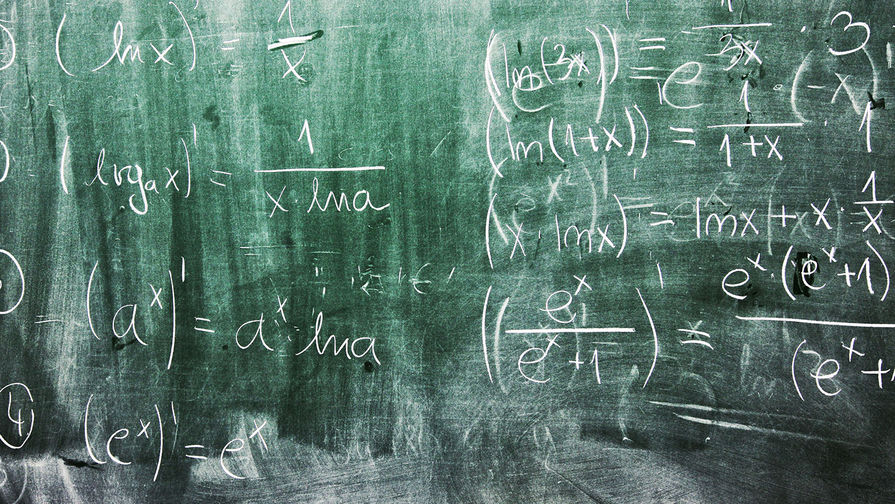 (ln x)' = 1/x
(log_a x)' = 1/(x · ln a)
(a^x)' = a^x · ln a
4
(e^x)' = e^x
(ln(3x))' = 1/3x · 3
(ln(1+x))' = 1/(1+x) · 1
(x · ln x)' = ln x + x · 1/x
(e^x/(e^x+1))' = e^x · (e^x+1)
(e^x +